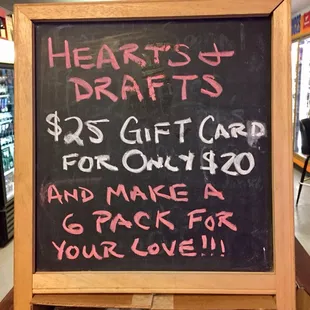 HEARTS &
DRAFTS
$25 GIFT CARD
FOR ONLY $20
AND MAKE A
6 PACK FOR
YOUR LOVE!!!